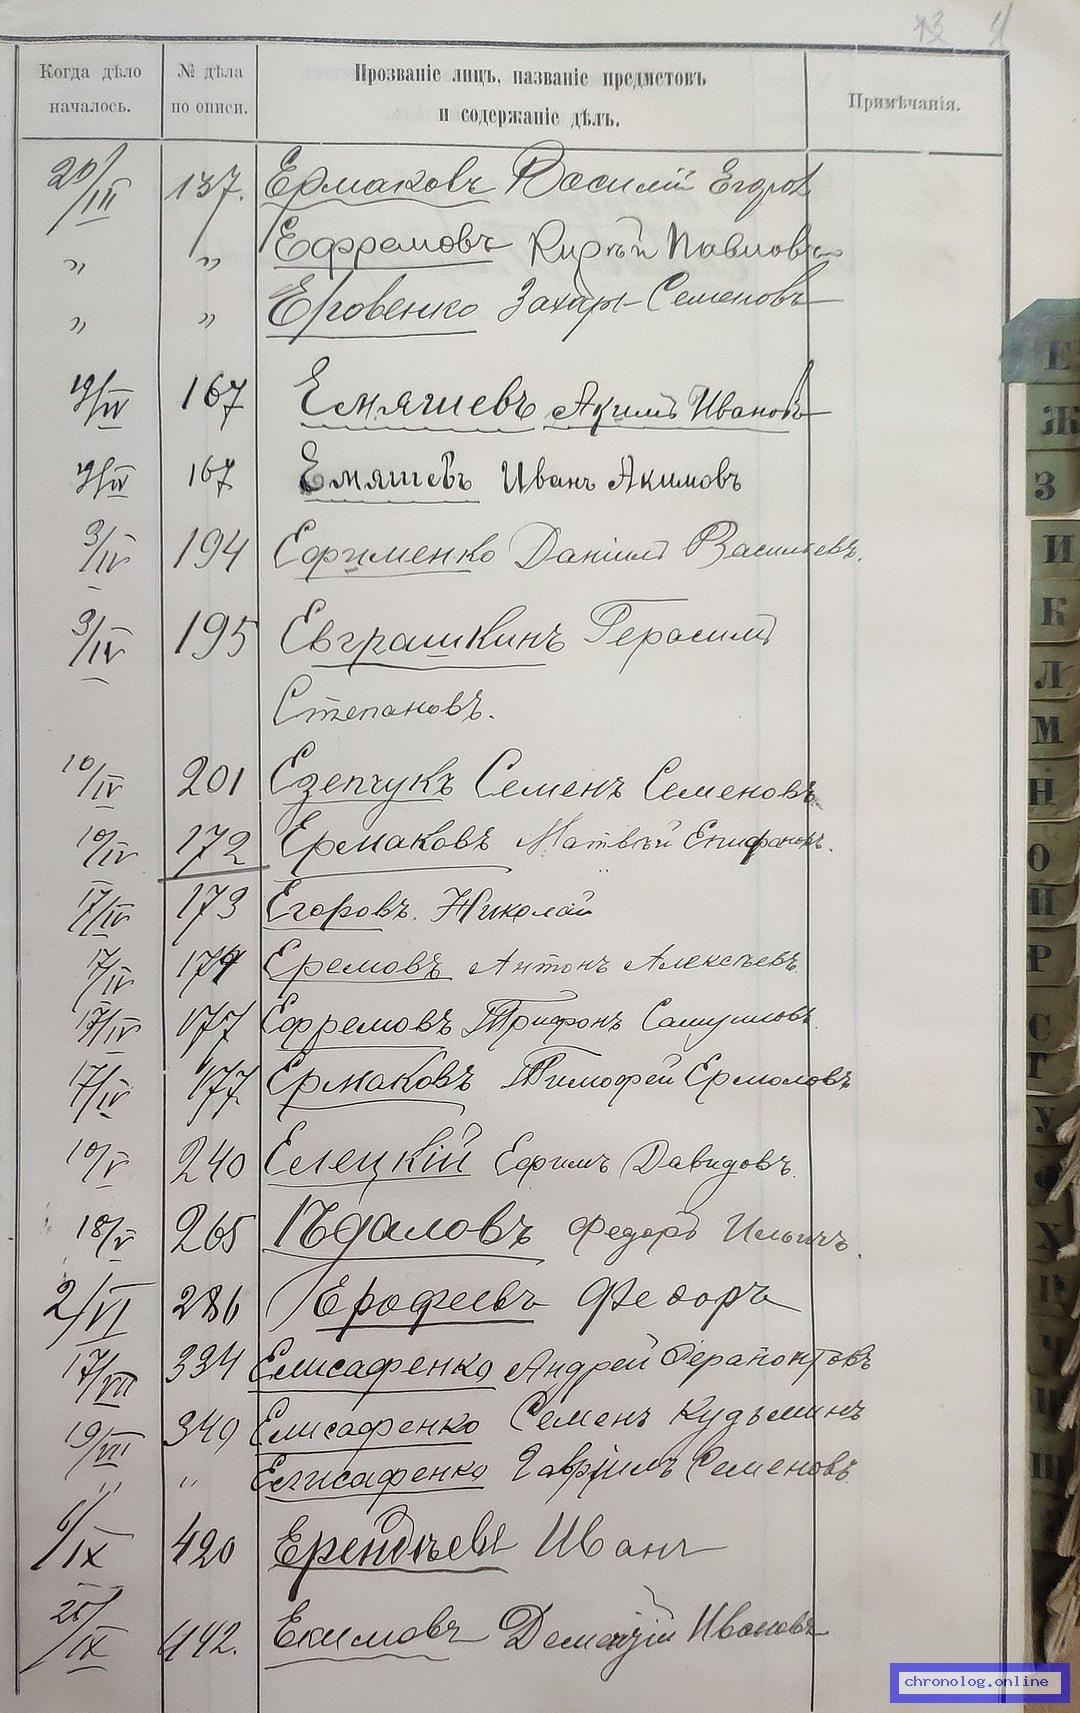 Когда дѣло
началось.
№ дѣла
по описи.
Прозваніе лицъ, названіе предметовъ
и содержаніе дѣлъ.
Примѣчанія.
20/III 137. Ермаковъ Василій Егоров
" " Ефремовъ Павловъ
" " Еровенко Захаръ Семеновъ
19/IV 167 Емяшевъ Акимъ Ивановъ
167 Емяшевъ Иванъ Акимовъ
3/IV 194 Ефименко Даніилъ Васильевъ.
3/IV 195 Евграшкинъ Герасимъ
Степановъ.
10/IV 201 Езепчукъ Семенъ Семеновъ
10/IV 172 Ермаковъ Матвѣй Епифановъ.
17/IV 173 Егоровъ. Николай
17/IV 174 Еремовъ Антонъ Алексѣевъ
17/IV 177 Ефремовъ Трифонъ Самуиловъ
17/IV 177 Ермаковъ Тимофей Ермоловъ
10/V 240 Елецкій Ефимъ Давидовъ
18/V 265 Ѣдаловъ Федоръ Ильичъ.
2/VI 286 Ерофеевъ Федоръ
17/VII 334 Елисафенко Андрей Ферапонтовъ
19/VIII 349 Елисафенко Семенъ Кузьминъ
" " Елисафенко Гавріилъ Семеновъ
6/IX 420 Иванъ
25/IX 442. Екимовъ Дементій Ивановъ
Е
Ж
З
И
К
Л
М
Н
О
П
Р
С
Т
У
Ф
Х
Ц
Ч
Ш
Щ
chronolog.online